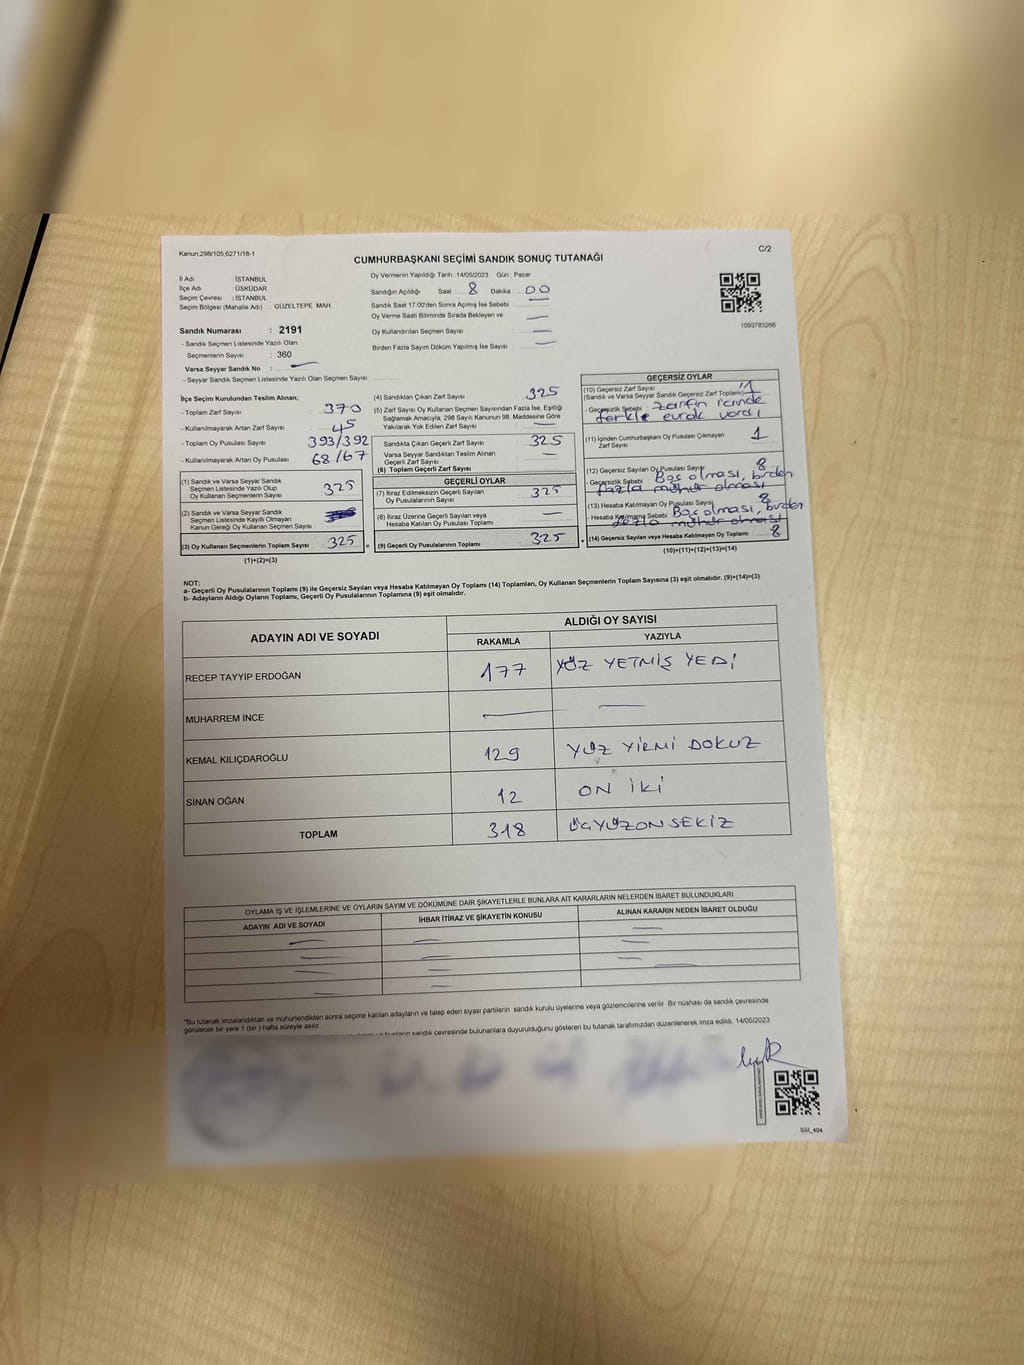 Kanun;298/105,6271/18-1
C/2
CUMHURBAŞKANI SEÇİMİ SANDIK SONUÇ TUTANAĞI
İl Adı : İSTANBUL
İlçe Adı : ÜSKÜDAR
Seçim Çevresi : İSTANBUL
Seçim Bölgesi (Mahalle Adı) : GÜZELTEPE MAH.
Sandık Numarası : 2191
- Sandık Seçmen Listesinde Yazılı Olan
Seçmenlerin Sayısı : 360
Varsa Seyyar Sandık No :
- Seyyar Sandık Seçmen Listesinde Yazılı Olan Seçmen Sayısı
Oy Vermenin Yapıldığı Tarih : 14/05/2023 Gün : Pazar
Sandığın Açıldığı Saat : 8 Dakika : 00
Sandık Saat 17:00'den Sonra Açımış İse Sebebi
Oy Verme Saati Bitiminde Sırada Bekleyen ve : —
Oy Kullandırılan Seçmen Sayısı : —
Birden Fazla Sayım Döküm Yapılmış İse Sayısı : —
1093783266
İlçe Seçim Kurulundan Teslim Alınan;
- Toplam Zarf Sayısı : 370
- Kullanılmayarak Artan Zarf Sayısı : 45
- Toplam Oy Pusulası Sayısı : 393/392
- Kullanılmayarak Artan Oy Pusulası : 68/67
(1) Sandık ve Varsa Seyyar Sandık
Seçmen Listesinde Yazılı Olup
Oy Kullanan Seçmenlerin Sayısı : 325
(2) Sandık ve Varsa Seyyar Sandık
Seçmen Listesinde Kayıtlı Olmayan
Kanun Gereği Oy Kullanan Seçmen Sayısı :
(3) Oy Kullanan Seçmenlerin Toplam Sayısı : 325
(1)+(2)=(3)
(4) Sandıktan Çıkan Zarf Sayısı : 325
(5) Zarf Sayısı Oy Kullanan Seçmen Sayısından Fazla İse, Eşitliği
Sağlamak Amacıyla, 298 Sayılı Kanunun 98. Maddesine Göre
Yakılarak Yok Edilen Zarf Sayısı : —
Sandıkta Çıkan Geçerli Zarf Sayısı : 325
Varsa Seyyar Sandıktan Teslim Alınan
Geçerli Zarf Sayısı : —
(6) Toplam Geçerli Zarf Sayısı
GEÇERLİ OYLAR
(7) İtiraz Edilmeksizin Geçerli Sayılan
Oy Pusulalarının Sayısı : 325
(8) İtiraz Üzerine Geçerli Sayılan veya
Hesaba Katılan Oy Pusulası Toplamı : —
(9) Geçerli Oy Pusulalarının Toplamı : 325
GEÇERSİZ OYLAR
(10) Geçersiz Zarf Sayısı : 1
(Sandık ve Varsa Seyyar Sandık Geçersiz Zarf Toplamı)
- Geçersizlik Sebebi : zarfın içinde
farklı evrak vardı
(11) İçinden Cumhurbaşkanı Oy Pusulası Çıkmayan
Zarf Sayısı : 1
(12) Geçersiz Sayılan Oy Pusulası Sayısı : 8
- Geçersizlik Sebebi : Boş olması, birden
fazla mühür olması
(13) Hesaba Katılmayan Oy Pusulası Sayısı : 8
- Hesaba Katılmama Sebebi : Boş olması, birden
fazla mühür olması
(14) Geçersiz Sayılan veya Hesaba Katılmayan Oy Toplamı : 8
(10)+(11)+(12)+(13)=(14)
NOT:
a- Geçerli Oy Pusulalarının Toplamı (9) ile Geçersiz Sayılan veya Hesaba Katılmayan Oy Toplamı (14) Toplamları, Oy Kullanan Seçmenlerin Toplam Sayısına (3) eşit olmalıdır. (9)+(14)=(3)
b- Adayların Aldığı Oyların Toplamı, Geçerli Oy Pusulalarının Toplamına (9) eşit olmalıdır.
ADAYIN ADI VE SOYADI
ALDIĞI OY SAYISI
RAKAMLA YAZIYLA
RECEP TAYYİP ERDOĞAN 177 YÜZ YETMİŞ YEDİ
MUHARREM İNCE — —
KEMAL KILIÇDAROĞLU 129 YÜZ YİRMİ DOKUZ
SİNAN OĞAN 12 ON İKİ
TOPLAM 318 ÜÇYÜZONSEKİZ
OYLAMA İŞ VE İŞLEMLERİNE VE OYLARIN SAYIM VE DÖKÜMÜNE DAİR ŞİKAYETLERLE BUNLARA AİT KARARLARIN NELERDEN İBARET BULUNDUKLARI
ADAYIN ADI VE SOYADI İHBAR İTİRAZ VE ŞİKAYETİN KONUSU ALINAN KARARIN NEDEN İBARET OLDUĞU
*Bu tutanak imzalandıktan ve mühürlendikten sonra seçime katılan adayların ve talep eden siyasi partilerin sandık kurulu üyelerine veya gözlemcilerine verilir. Bir nüshası da sandık çevresinde
görülecek bir yere 1 (bir) hafta süreyle asılır.
sandık çevresinde bulunanlara duyurulduğunu gösteren bu tutanak tarafımızdan düzenlenerek imza edildi. 14/05/2023
SSI_404